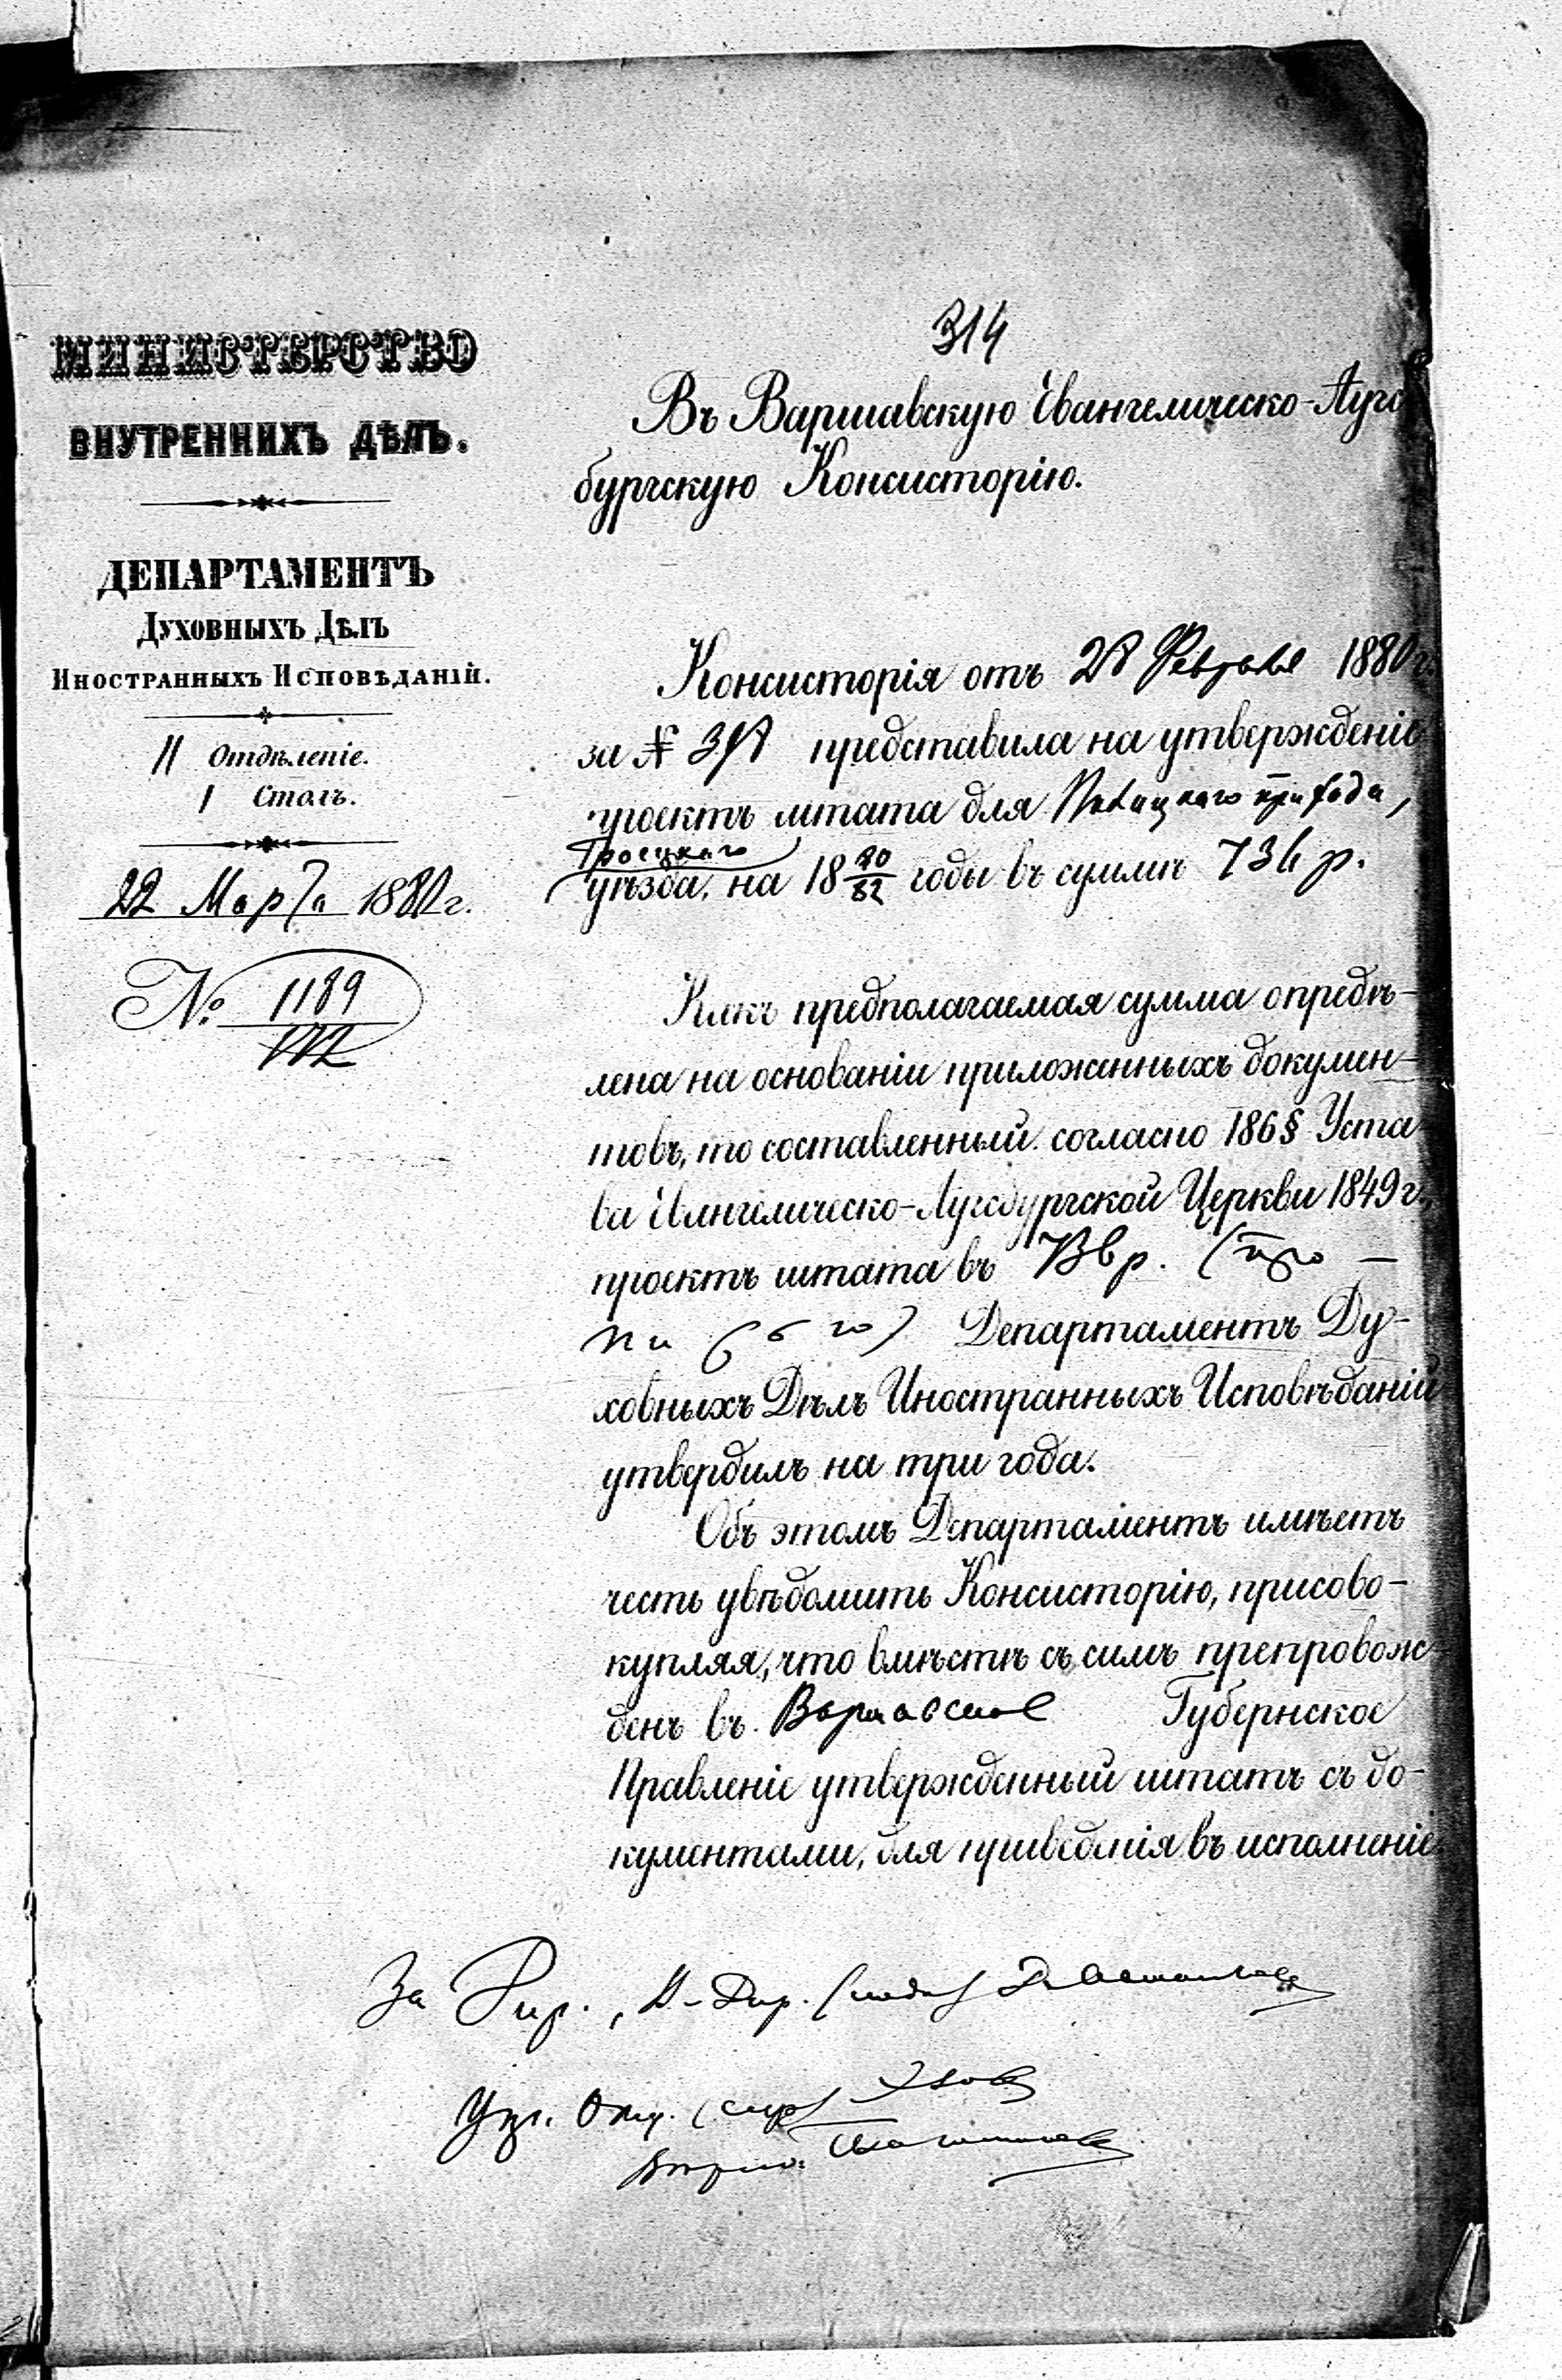 МИНИСТЕРСТВО
ВНУТРЕННИХЪ ДѢЛЪ.
ДЕПАРТАМЕНТЪ
Духовныхъ Дѣлъ
Иностранныхъ Исповѣданій.
II Отдѣленіе.
1 Столъ.
22 Марта 1880 г.
№ 1189
314
Въ Варшавскую Евангелическо-Аугс
бургскую Консисторію.
Консисторія отъ 28 Февраля 1880 г.
за № представила на утвержденіе
проектъ штата для прихода,
уѣзда, на 18 80/82 годы въ суммѣ 736 р.
Какъ предполагаемая сумма опредѣ-
лена на основаніи приложенныхъ докумен-
товъ, то составленный согласно 186 § Уста
ва Евангелическо-Аугсбургской Церкви 1849 г.,
проектъ штата въ р.
Департаментъ Ду-
ховныхъ Дѣлъ Иностранныхъ Исповѣданій
утвердилъ на три года.
Объ этомъ Департаментъ имѣетъ
честь увѣдомить Консисторію, присово-
купляя, что вмѣстѣ съ симъ препровож-
денъ въ Варшавское Губернское
Правленіе утвержденный штатъ съ до-
кументами, для приведенія въ исполненіе.
За Дир.,